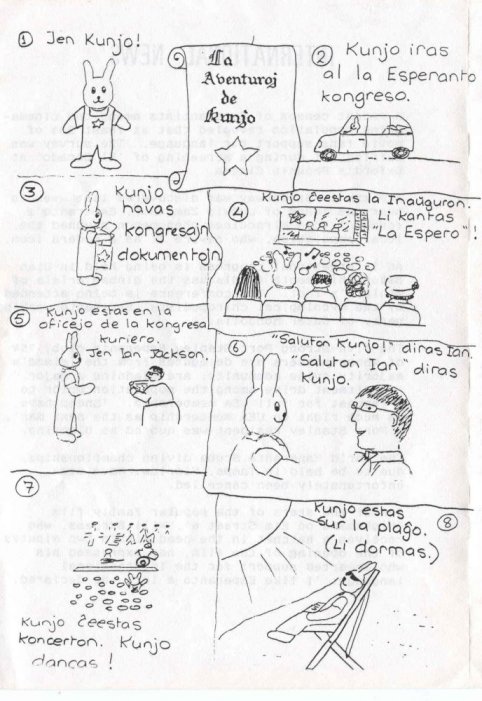 ① Jen Kunjo!
La
Aventuroj
de
Kunjo
② Kunjo iras
al la Esperanto
kongreso.
③ Kunjo
havas
kongresajn
dokumentojn
④ Kunjo ĉeestas la Inaŭguron.
Li kantas
"La Espero"!
⑤ Kunjo estas en la
oficejo de la kongresa
kuriero.
Jen Ian Jackson.
⑥ "Saluton Kunjo!" diras Ian.
"Saluton Ian" diras
Kunjo.
⑦
Kunjo ĉeestas
koncerton. Kunjo
dancas!
⑧ Kunjo estas
sur la plaĝo.
(Li dormas.)